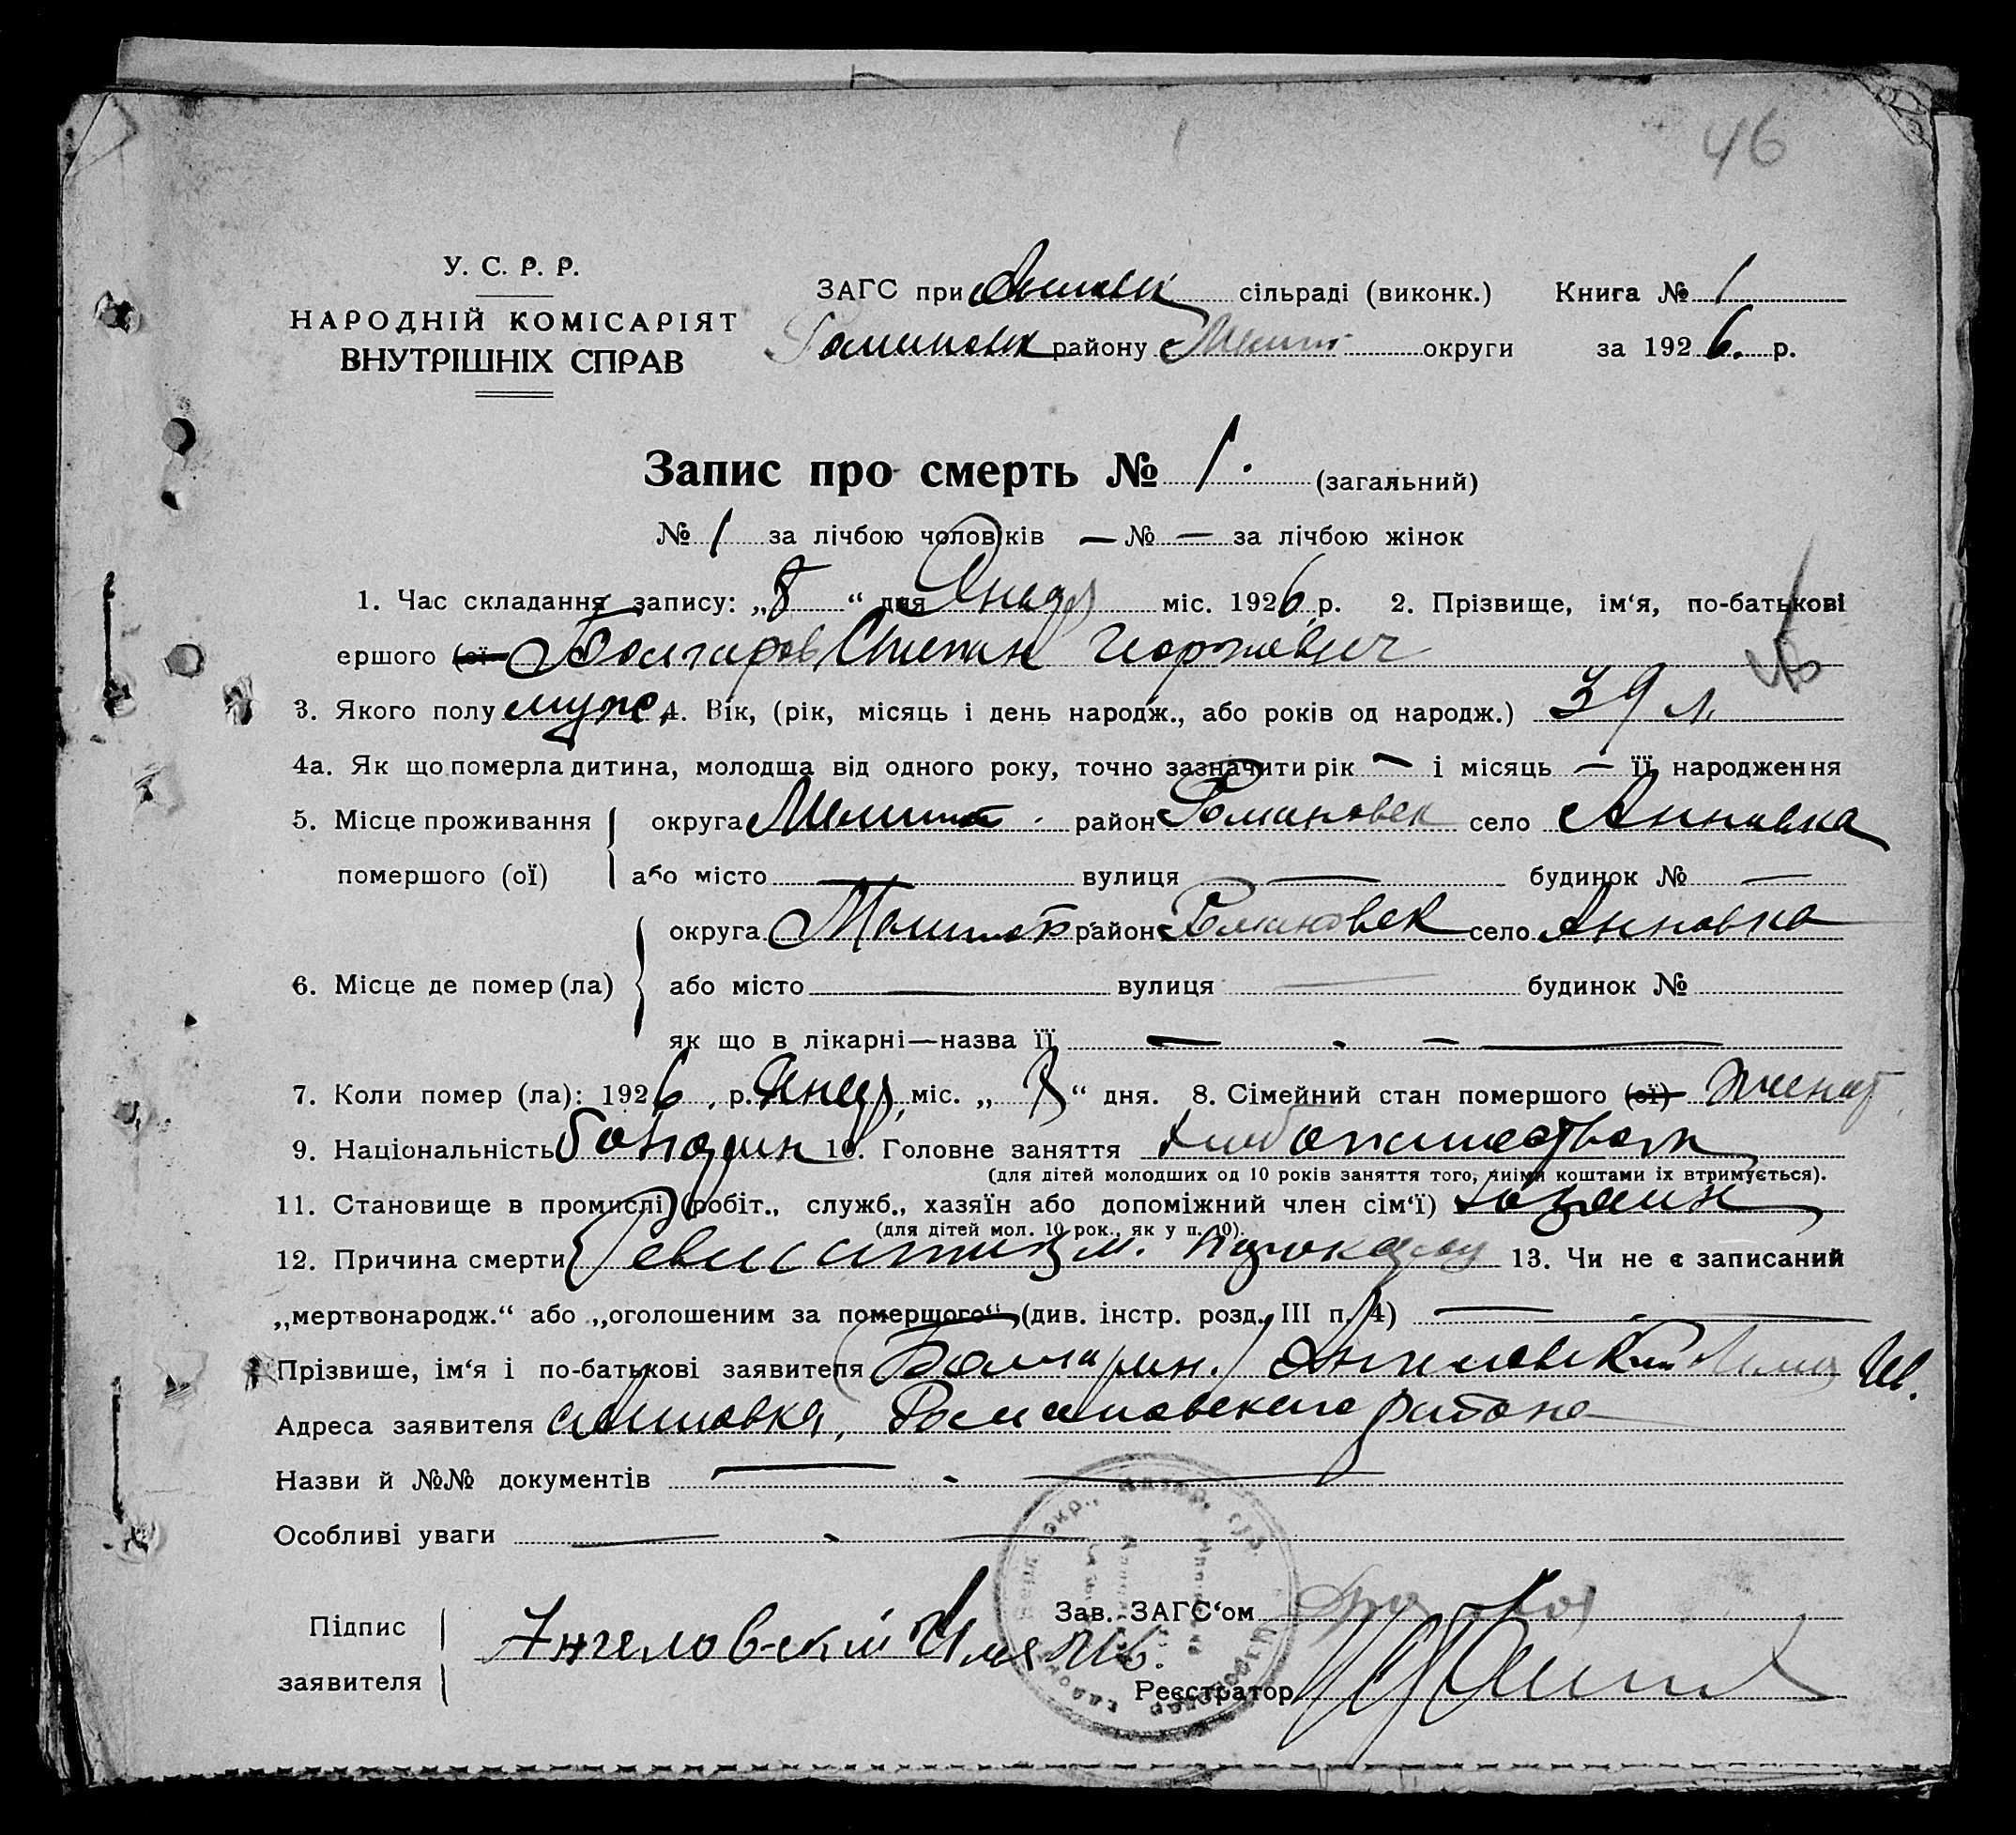 46
У. С. Р. Р.
НАРОДНІЙ КОМІСАРІЯТ
ВНУТРІШНІХ СПРАВ
ЗАГС при сільраді (виконк.) Книга № 1
району Мелит округи за 1926. р.
Запис про смерть № 1. (загальний)
№ 1 за лічбою чоловіків — № — за лічбою жінок
1. Час складання запису: „8“ дня Января міс. 1926 р. 2. Прізвище, ім‘я, по-батькові
ершого (ої Болгаров Степан Георгиевич
3. Якого полу муж. 4. Вік, (рік, місяць і день народж., або років од народж.) 39 л.
4а. Як що померла дитина, молодша від одного року, точно зазначити рік — і місяць — її народження
5. Місце проживання округа Мелит. район Романовск село Анновка
помершого (ої) або місто — вулиця — будинок № —
округа Мелитоп район Романовск село Анновка
6. Місце де помер (ла) або місто — вулиця — будинок №
як що в лікарні—назва її — . — —
7. Коли помер (ла): 1926. р. Января міс. „8“ дня. 8. Сімейний стан помершого (ої) женат
9. Національність 10. Головне заняття хлебопашеством
(для дітей молодших од 10 років заняття того, чиїми коштами їх втримується).
11. Становище в промислі) (робіт., служб., хазяїн або допоміжний член сім‘ї) хозяин
(для дітей мол. 10 рок., як у п. 10).
12. Причина смерти 13. Чи не є записаний
„мертвонародж.“ або „оголошеним за померщого“ (див. інстр. розд. III п. 4) —
Прізвише, ім‘я і по-батькові заявителя Ангеловский Илья Ив.
Адреса заявителя Анновка, Романовского района
Назви й №№ документів — . —
Особливі уваги — . —
Підпис
заявителя
Ангеловский Илья Ив.
Зав. ЗАГС‘ом
Реєстратор